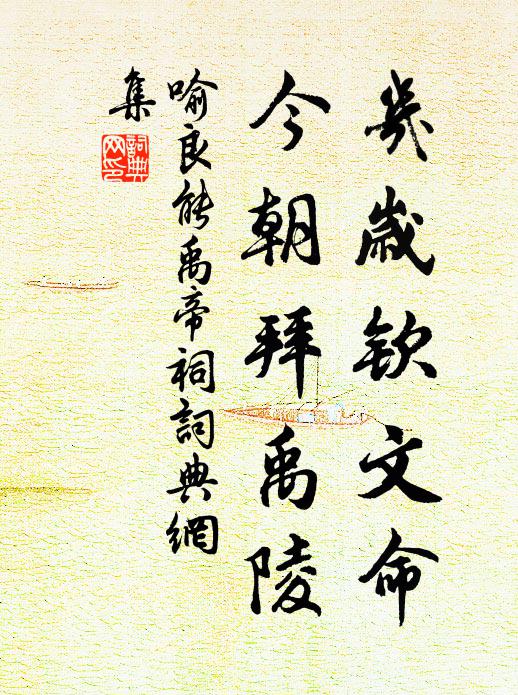 幾歲欽文命
今朝拜禹陵
喻良能禹帝祠詞典網
集
詞典
网印